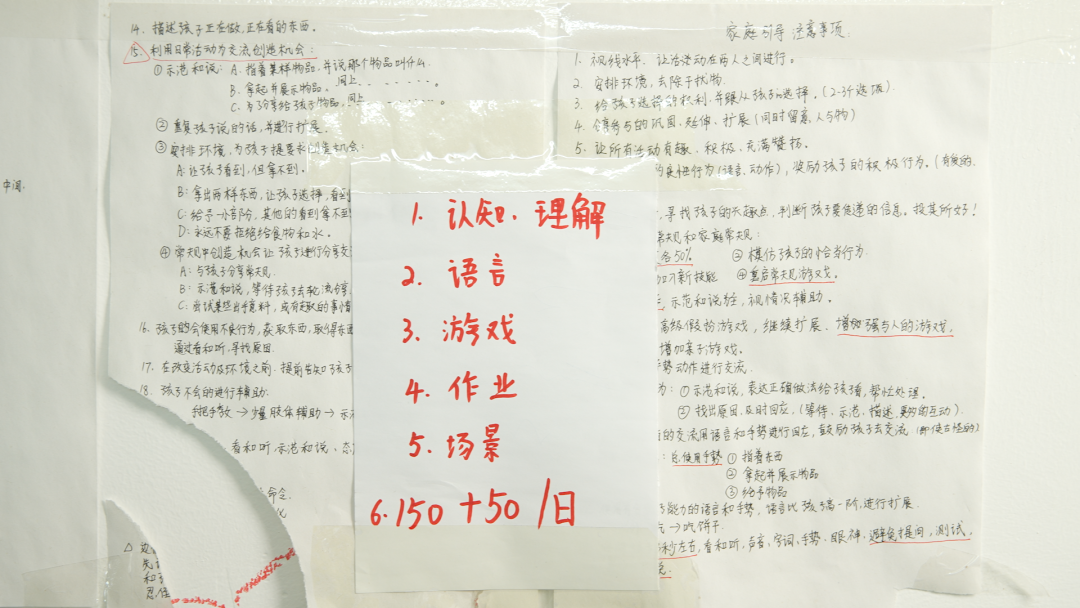 中间.
14. 描述孩子正在做,正在看的东西。
15. 利用日常活动为交流创造机会:
①示范和说: A. 指着某样物品,并说那个物品叫什么.
B. 拿起并展示物品。 同上
C. 为了分享给孩子物品, 同上
② 重复孩子说的话,并进行扩展.
③ 安排环境,为孩子提要求创造机会:
A: 让孩子看到,但拿不到。
B: 拿出两样东西,让孩子选择,看到
C: 给予一小部分,其他的看到拿不到
D: 永远不要拒绝给食物和水。
④ 常规中创造机会让孩子进行分享交
A: 与孩子分享常规.
B: 示范和说,等待孩子去轮流分享.
C: 尝试某些出乎意料,或有趣的事情
16. 孩子的会使用不良行为,获取东西,取得东西
通过看和听,寻找原因.
17. 在改变活动及环境之前,提前告知了孩子
18. 孩子不会的进行辅助:
手把手教 → 少量肢体辅助 → 示范
看和听.示范和说、
命令.
化
1. 认知、理解
2. 语言
3. 游戏
4. 作业
5. 场景
6. 150 + 50 /日
家庭引导 注意事项:
1. 视线水平、让活动在两人之间进行。
2. 安排环境,去除干扰物.
3. 给孩子选择的权利,并跟从孩子的选择。(2-3个选项)
4. 参与的巩固、延伸、扩展 (同时留意人与物)
5. 让所有活动有趣、积极、充满赞扬。
的良性行为(语言、动作),奖励孩子的积极行为。(有效的.
,寻找孩子的兴趣点,判断孩子要传递的信息。投其所好!
常规和家庭常规:
各50% ② 模仿孩子的恰当行为.
加习新技能 ④重启常规游戏。
,示范和说为主,视情况辅助。
高级假扮游戏,继续扩展、增加强与人的游戏。
增加亲子游戏。
手势动作进行交流.
为: ① 示范和说,表达正确做法给孩子看,帮忙处理。
② 找出原因,及时回应,(等待、示范、描述、更多的互动).
的交流用语言和手势进行回应,鼓励孩子去交流 (即使古怪的)
: 总使用手势 ① 指着东西
② 拿起并展示物品
③ 给予物品
能力的语言和手势、语言比孩子高一阶,进行扩展.
→吃饼干.
秒左右,看和听,声音、字词、手势、眼神、避免提问,测试.